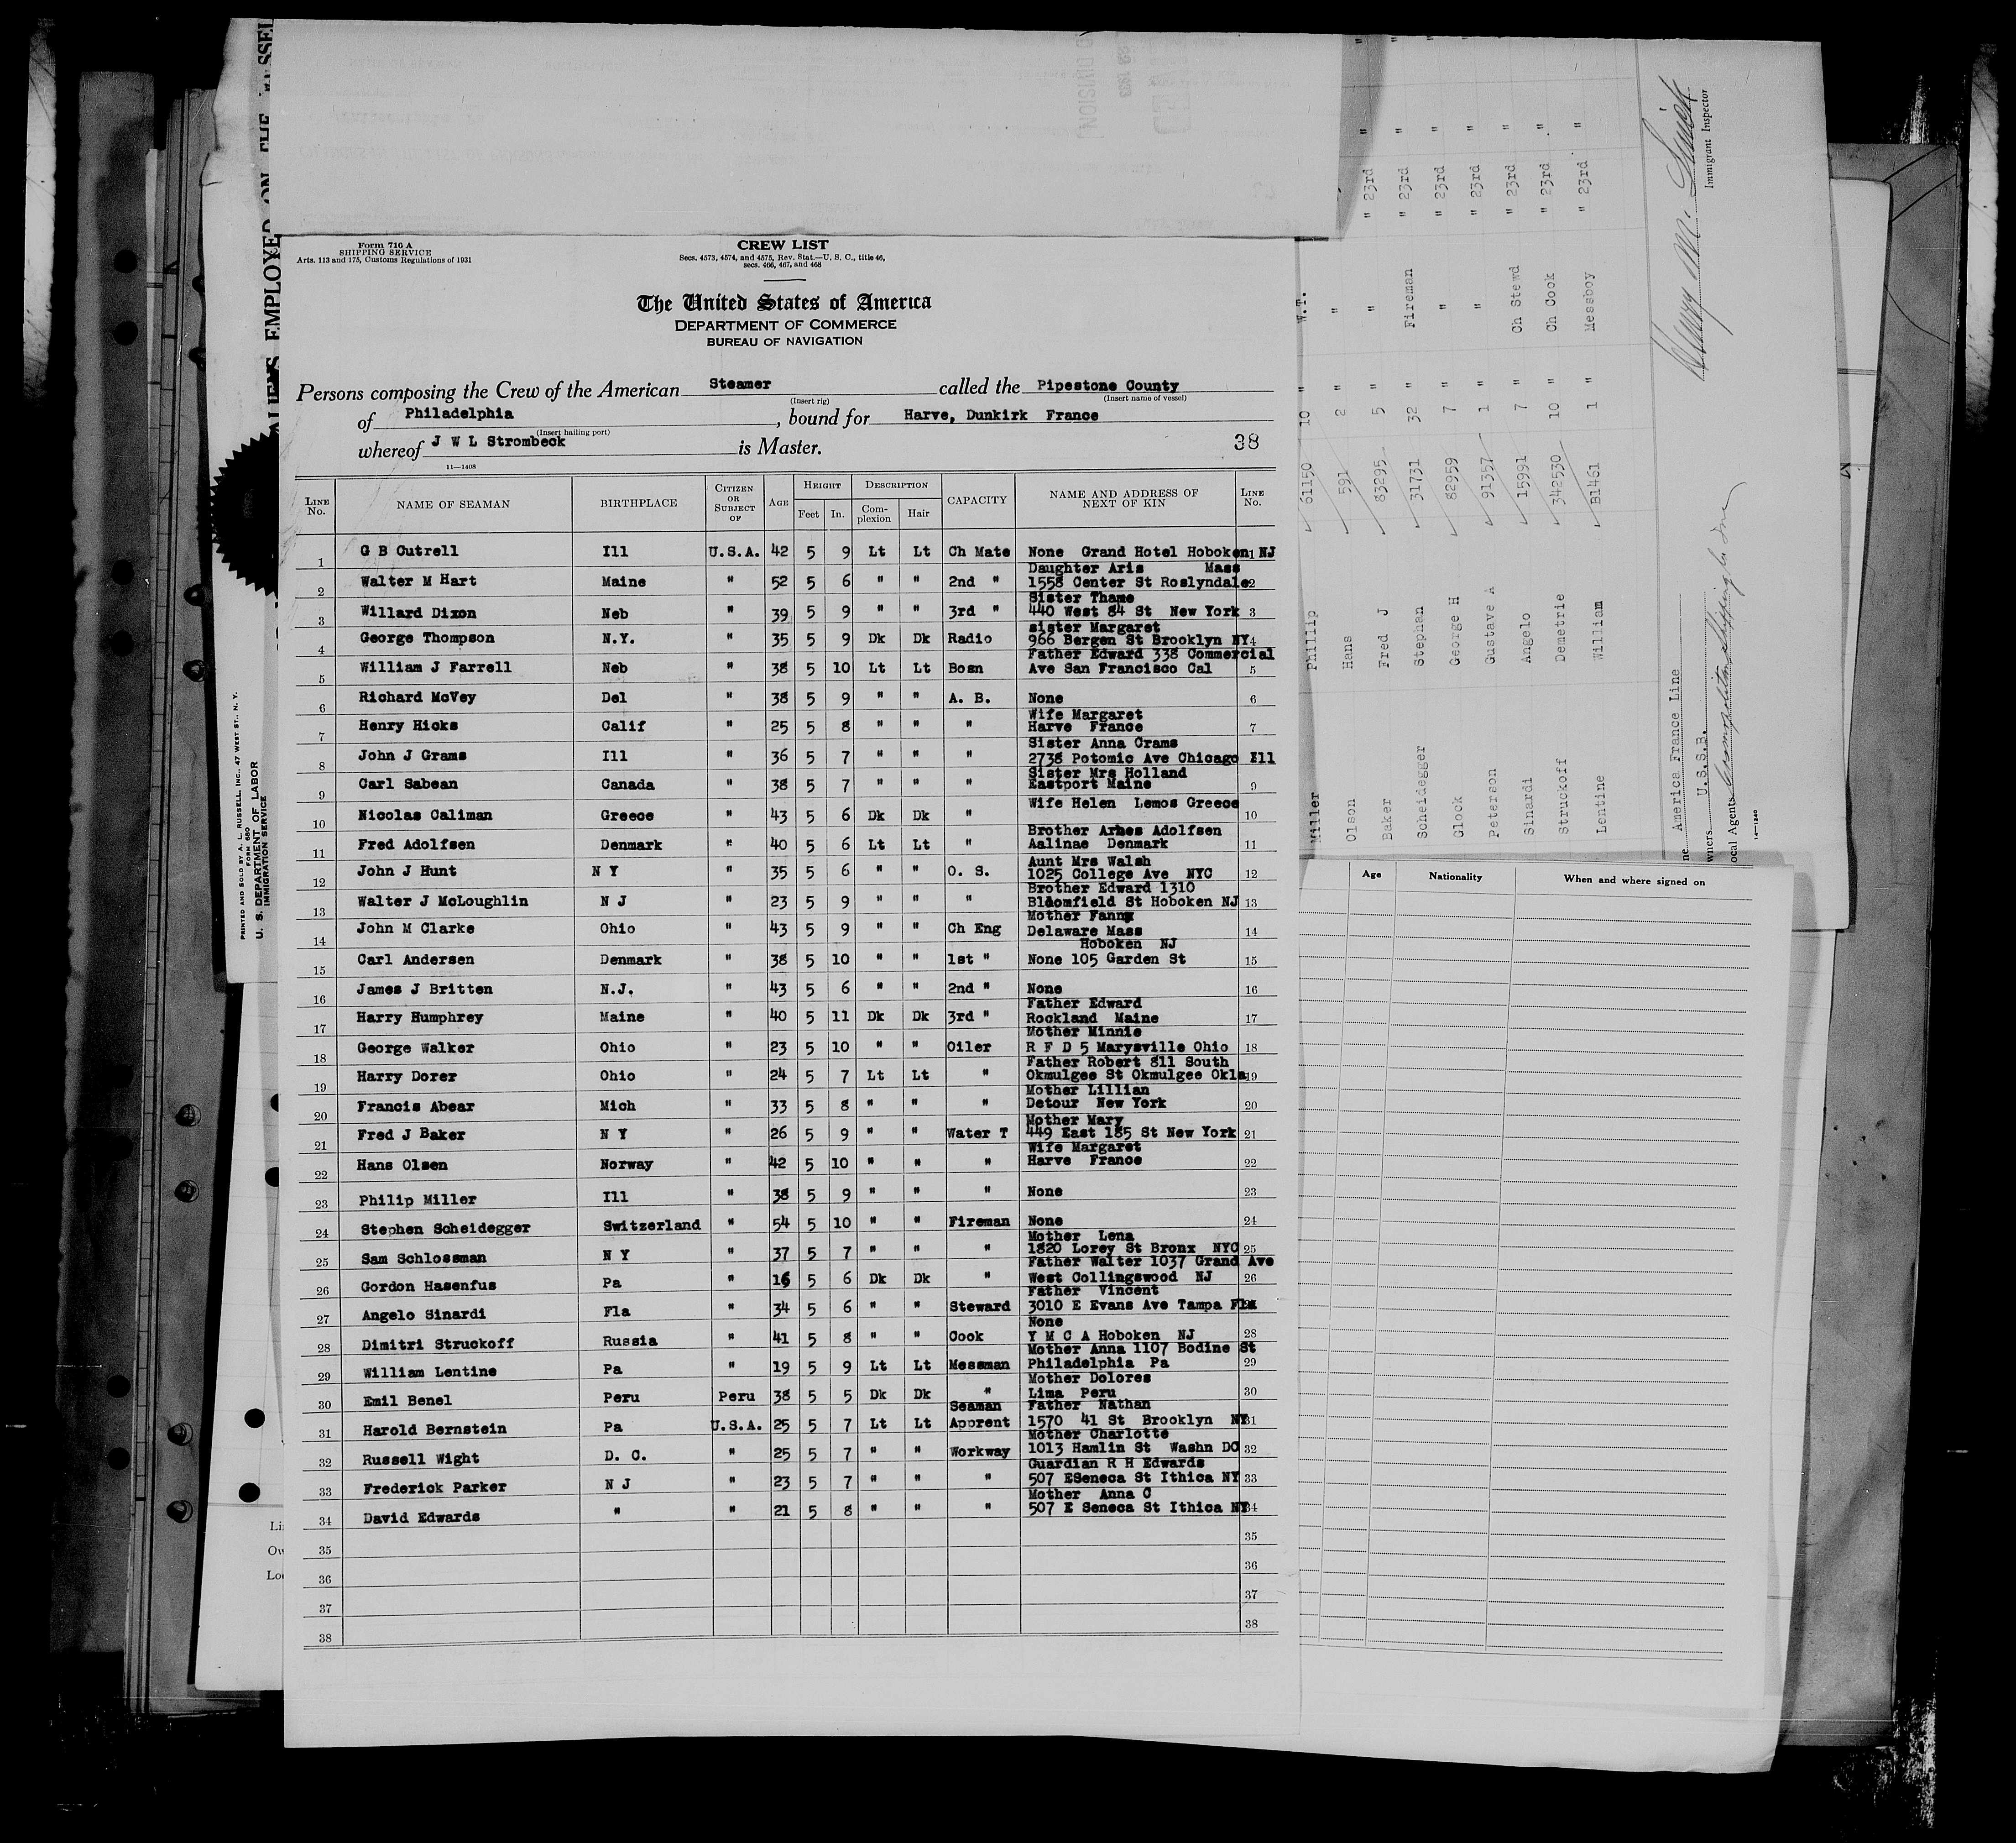 Form 716 A
SHIPPING SERVICE
Arts. 113 and 175, Customs Regulations of 1931
CREW LIST
Secs. 4573, 4574, and 4575, Rev. Stat.—U. S. C., title 46,
secs. 466, 467, and 468
The United States of America
DEPARTMENT OF COMMERCE
BUREAU OF NAVIGATION
Persons composing the Crew of the American Steamer called the Pipestone County
(Insert rig) (Insert name of vessel)
of Philadelphia , bound for Harve, Dunkirk France
(Insert hailing port)
whereof J W L Strombeck is Master. 38
11—1408
LINE No. NAME OF SEAMAN BIRTHPLACE CITIZEN OR SUBJECT OF AGE HEIGHT Feet In. DESCRIPTION Complexion Hair CAPACITY NAME AND ADDRESS OF NEXT OF KIN LINE No.
1 G B Cutrell Ill U.S.A. 42 5 9 Lt Lt Ch Mate None Grand Hotel Hoboken NJ 1
2 Walter M Hart Maine " 52 5 6 " " 2nd " Daughter Aris Mass 1558 Center St Roslyndale 2
3 Willard Dixon Neb " 39 5 9 " " 3rd " Sister Thame 440 West 84 St New York 3
4 George Thompson N.Y. " 35 5 9 Dk Dk Radio sister Margaret 966 Bergen St Brooklyn NY 4
5 William J Farrell Neb " 38 5 10 Lt Lt Bosn Father Edward 338 Commercial Ave San Francisco Cal 5
6 Richard McVey Del " 38 5 9 " " A. B. None 6
7 Henry Hicks Calif " 25 5 8 " " " Wife Margaret Harve France 7
8 John J Grams Ill " 36 5 7 " " " Sister Anna Crams 2738 Potomic Ave Chicago Ill
9 Carl Sabean Canada " 38 5 7 " " " Sister Mrs Holland Eastport Maine 9
10 Nicolas Caliman Greece " 43 5 6 Dk Dk " Wife Helen Lemos Greece 10
11 Fred Adolfsen Denmark " 40 5 6 Lt Lt " Brother Arhes Adolfsen Aalinae Denmark 11
12 John J Hunt N Y " 35 5 6 " " O. S. Aunt Mrs Walsh 1025 College Ave NYC 12
13 Walter J McLoughlin N J " 23 5 9 " " " Brother Edward 1310 Bloomfield St Hoboken NJ 13
14 John M Clarke Ohio " 43 5 9 " " Ch Eng Mother Fanny Delaware Mass 14
15 Carl Andersen Denmark " 38 5 10 " " 1st " Hoboken NJ None 105 Garden St 15
16 James J Britten N.J. " 43 5 6 " " 2nd " None 16
17 Harry Humphrey Maine " 40 5 11 Dk Dk 3rd " Father Edward Rockland Maine 17
18 George Walker Ohio " 23 5 10 " " Oiler Mother Minnie R F D 5 Marysville Ohio 18
19 Harry Dorer Ohio " 24 5 7 Lt Lt " Father Robert 811 South Okmulgee St Okmulgee Okla 19
20 Francis Abear Mich " 33 5 8 " " " Mother Lillian Detour New York 20
21 Fred J Baker N Y " 26 5 9 " " Water T Mother Mary 449 East 185 St New York 21
22 Hans Olsen Norway " 42 5 10 " " " Wife Margaret Harve France 22
23 Philip Miller Ill " 38 5 9 " " " None 23
24 Stephen Scheidegger Switzerland " 54 5 10 " " Fireman None 24
25 Sam Schlossman N Y " 37 5 7 " " " Mother Lena 1820 Lorey St Bronx NYC 25
26 Gordon Hasenfus Pa " 16 5 6 Dk Dk " Father Walter 1037 Grand Ave West Collingswood NJ 26
27 Angelo Sinardi Fla " 34 5 6 " " Steward Father Vincent 3010 E Evans Ave Tampa Fla
28 Dimitri Struckoff Russia " 41 5 8 " " Cook None Y M C A Hoboken NJ 28
29 William Lentine Pa " 19 5 9 Lt Lt Messman Mother Anna 1107 Bodine St Philadelphia Pa 29
30 Emil Benel Peru Peru 38 5 5 Dk Dk " Mother Dolores Lima Peru 30
31 Harold Bernstein Pa U.S.A. 25 5 7 Lt Lt Seaman Apprent Father Nathan 1570 41 St Brooklyn NY 31
32 Russell Wight D. C. " 25 5 7 " " Workway Mother Charlotte 1013 Hamlin St Washn DC 32
33 Frederick Parker N J " 23 5 7 " " " Guardian R H Edwards 507 ESeneca St Ithica NY 33
34 David Edwards " " 21 5 8 " " " Mother Anna C 507 E Seneca St Ithica NY 34
35 35
36 36
37 37
38 38
PRINTED AND SOLD BY A. L. RUSSELL, INC., 47 WEST ST., N. Y.
FORM 680
U. S. DEPARTMENT OF LABOR
IMMIGRATION SERVICE
EMPLOYED ON THE VESSEL
Miller Phillip 61150 10 " W.T.
Olson Hans 591 2 " "
Baker Fred J 83295 5 " " " 23rd "
Scheidegger Stephan 31731 32 " Fireman " 23rd "
Glock George H 82959 7 " " " 23rd "
Peterson Gustave A 91357 1 " " " 23rd "
Sinardi Angelo 15991 7 " Ch Stewd " 23rd "
Struckoff Demetrie 342530 10 " Ch Cook " 23rd "
Lentine William B1461 1 " Messboy " 23rd "
America France Line
U.S.S.B.
Immigrant Inspector
Age Nationality When and where signed on